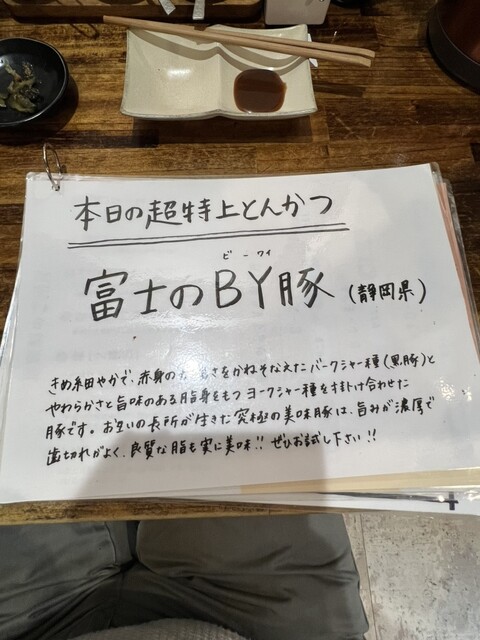 本日の超特上とんかつ
ビーワイ
富士のBY豚(静岡県)
きめ細やかで、赤身の さをかねそなえたバークシャー種(黒豚)と
やわらかさと旨味のある脂身をもつヨークシャー種を掛け合わせた
豚です。お互いの長所が生きた究極の美味豚は、旨みが濃厚で
歯切れがよく、良質な脂も実に美味!!ぜひお試し下さい!!